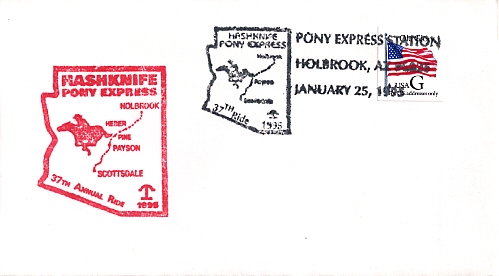 HASHKNIFE
PONY EXPRESS
HOLBROOK
HEBER
PINE
PAYSON
SCOTTSDALE
37TH ANNUAL RIDE
1995
HASHKNIFE
PONY EXPRESS
HOLBROOK
PAYSON
Scottsdale
37TH Ride
1995
PONY EXPRESS STATION
HOLBROOK, AZ
JANUARY 25, 1995
USA G
addresses only